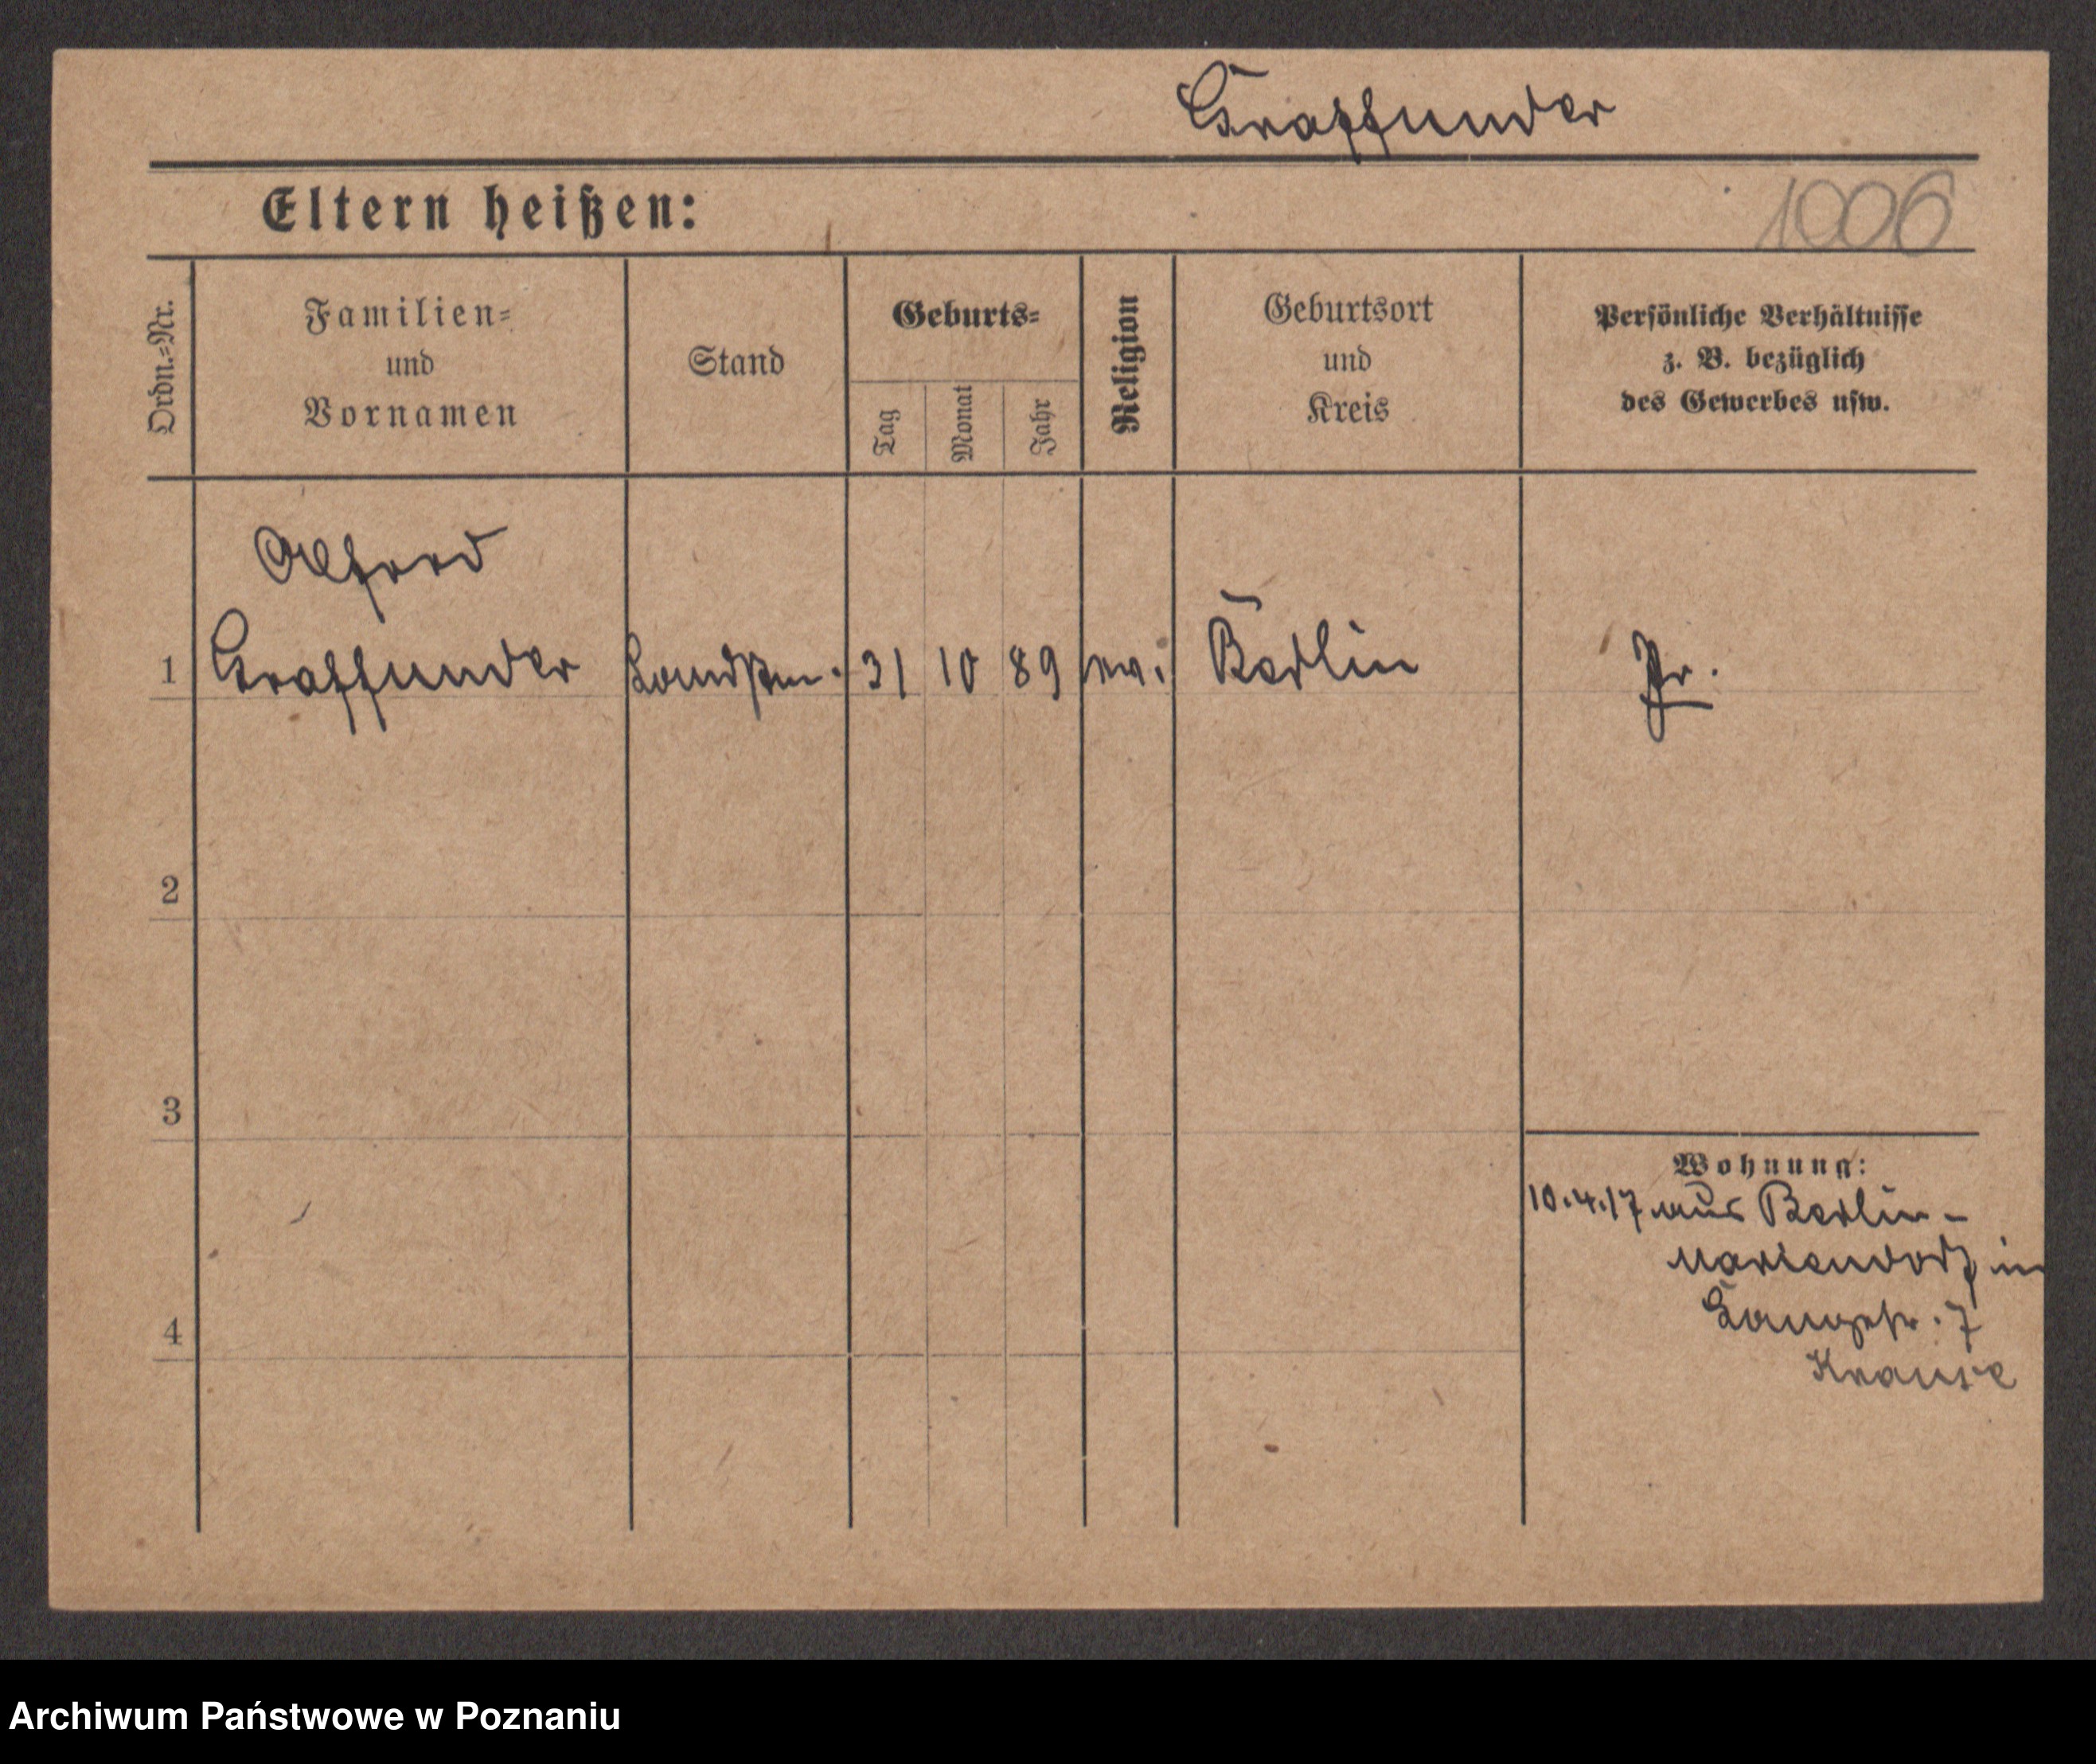 Graffunder
Eltern heißen:
1006
Ordn.=Nr.
Familien=
und
Vornamen
Stand
Geburts=
Tag
Monat
Jahr
Religion
Geburtsort
und
Kreis
Persönliche Verhältnisse
z. B. bezüglich
des Gewerbes usw.
Alfred
1 Graffunder Landstm. 31 10 89 ev. Berlin Pr.
2
3
4
Wohnung:
10.4.17 aus Berlin-
Mariendorf in
Langestr. 7
Krause
Archiwum Państwowe w Poznaniu